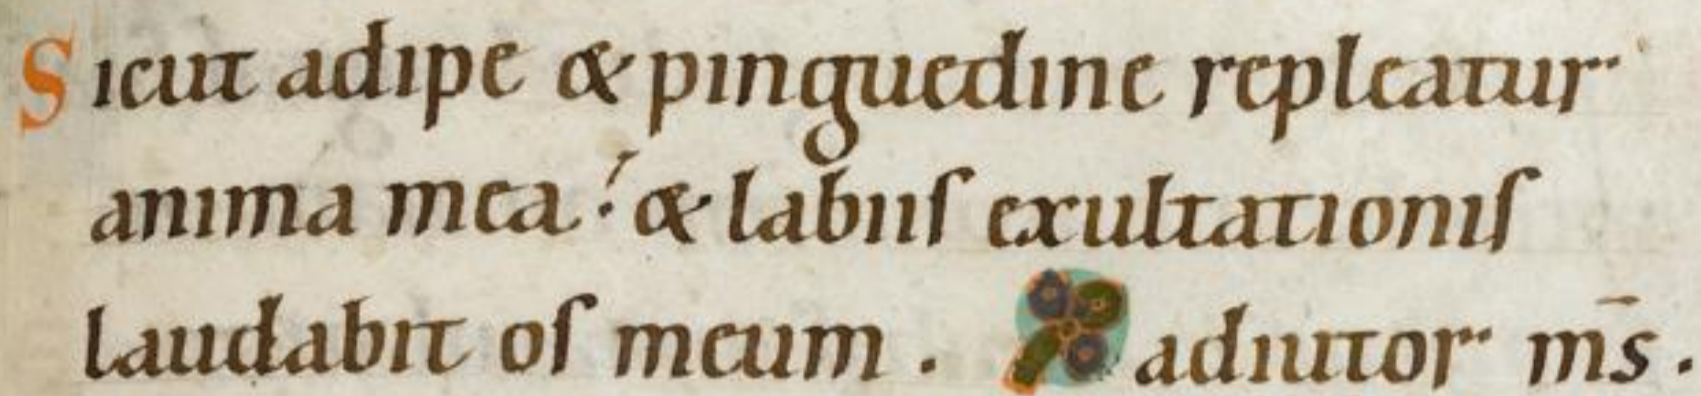 Sicut adipe & pinguedine repleatur
anima mea: & labiis exultationis
laudabit os meum. adiutor m̄s.